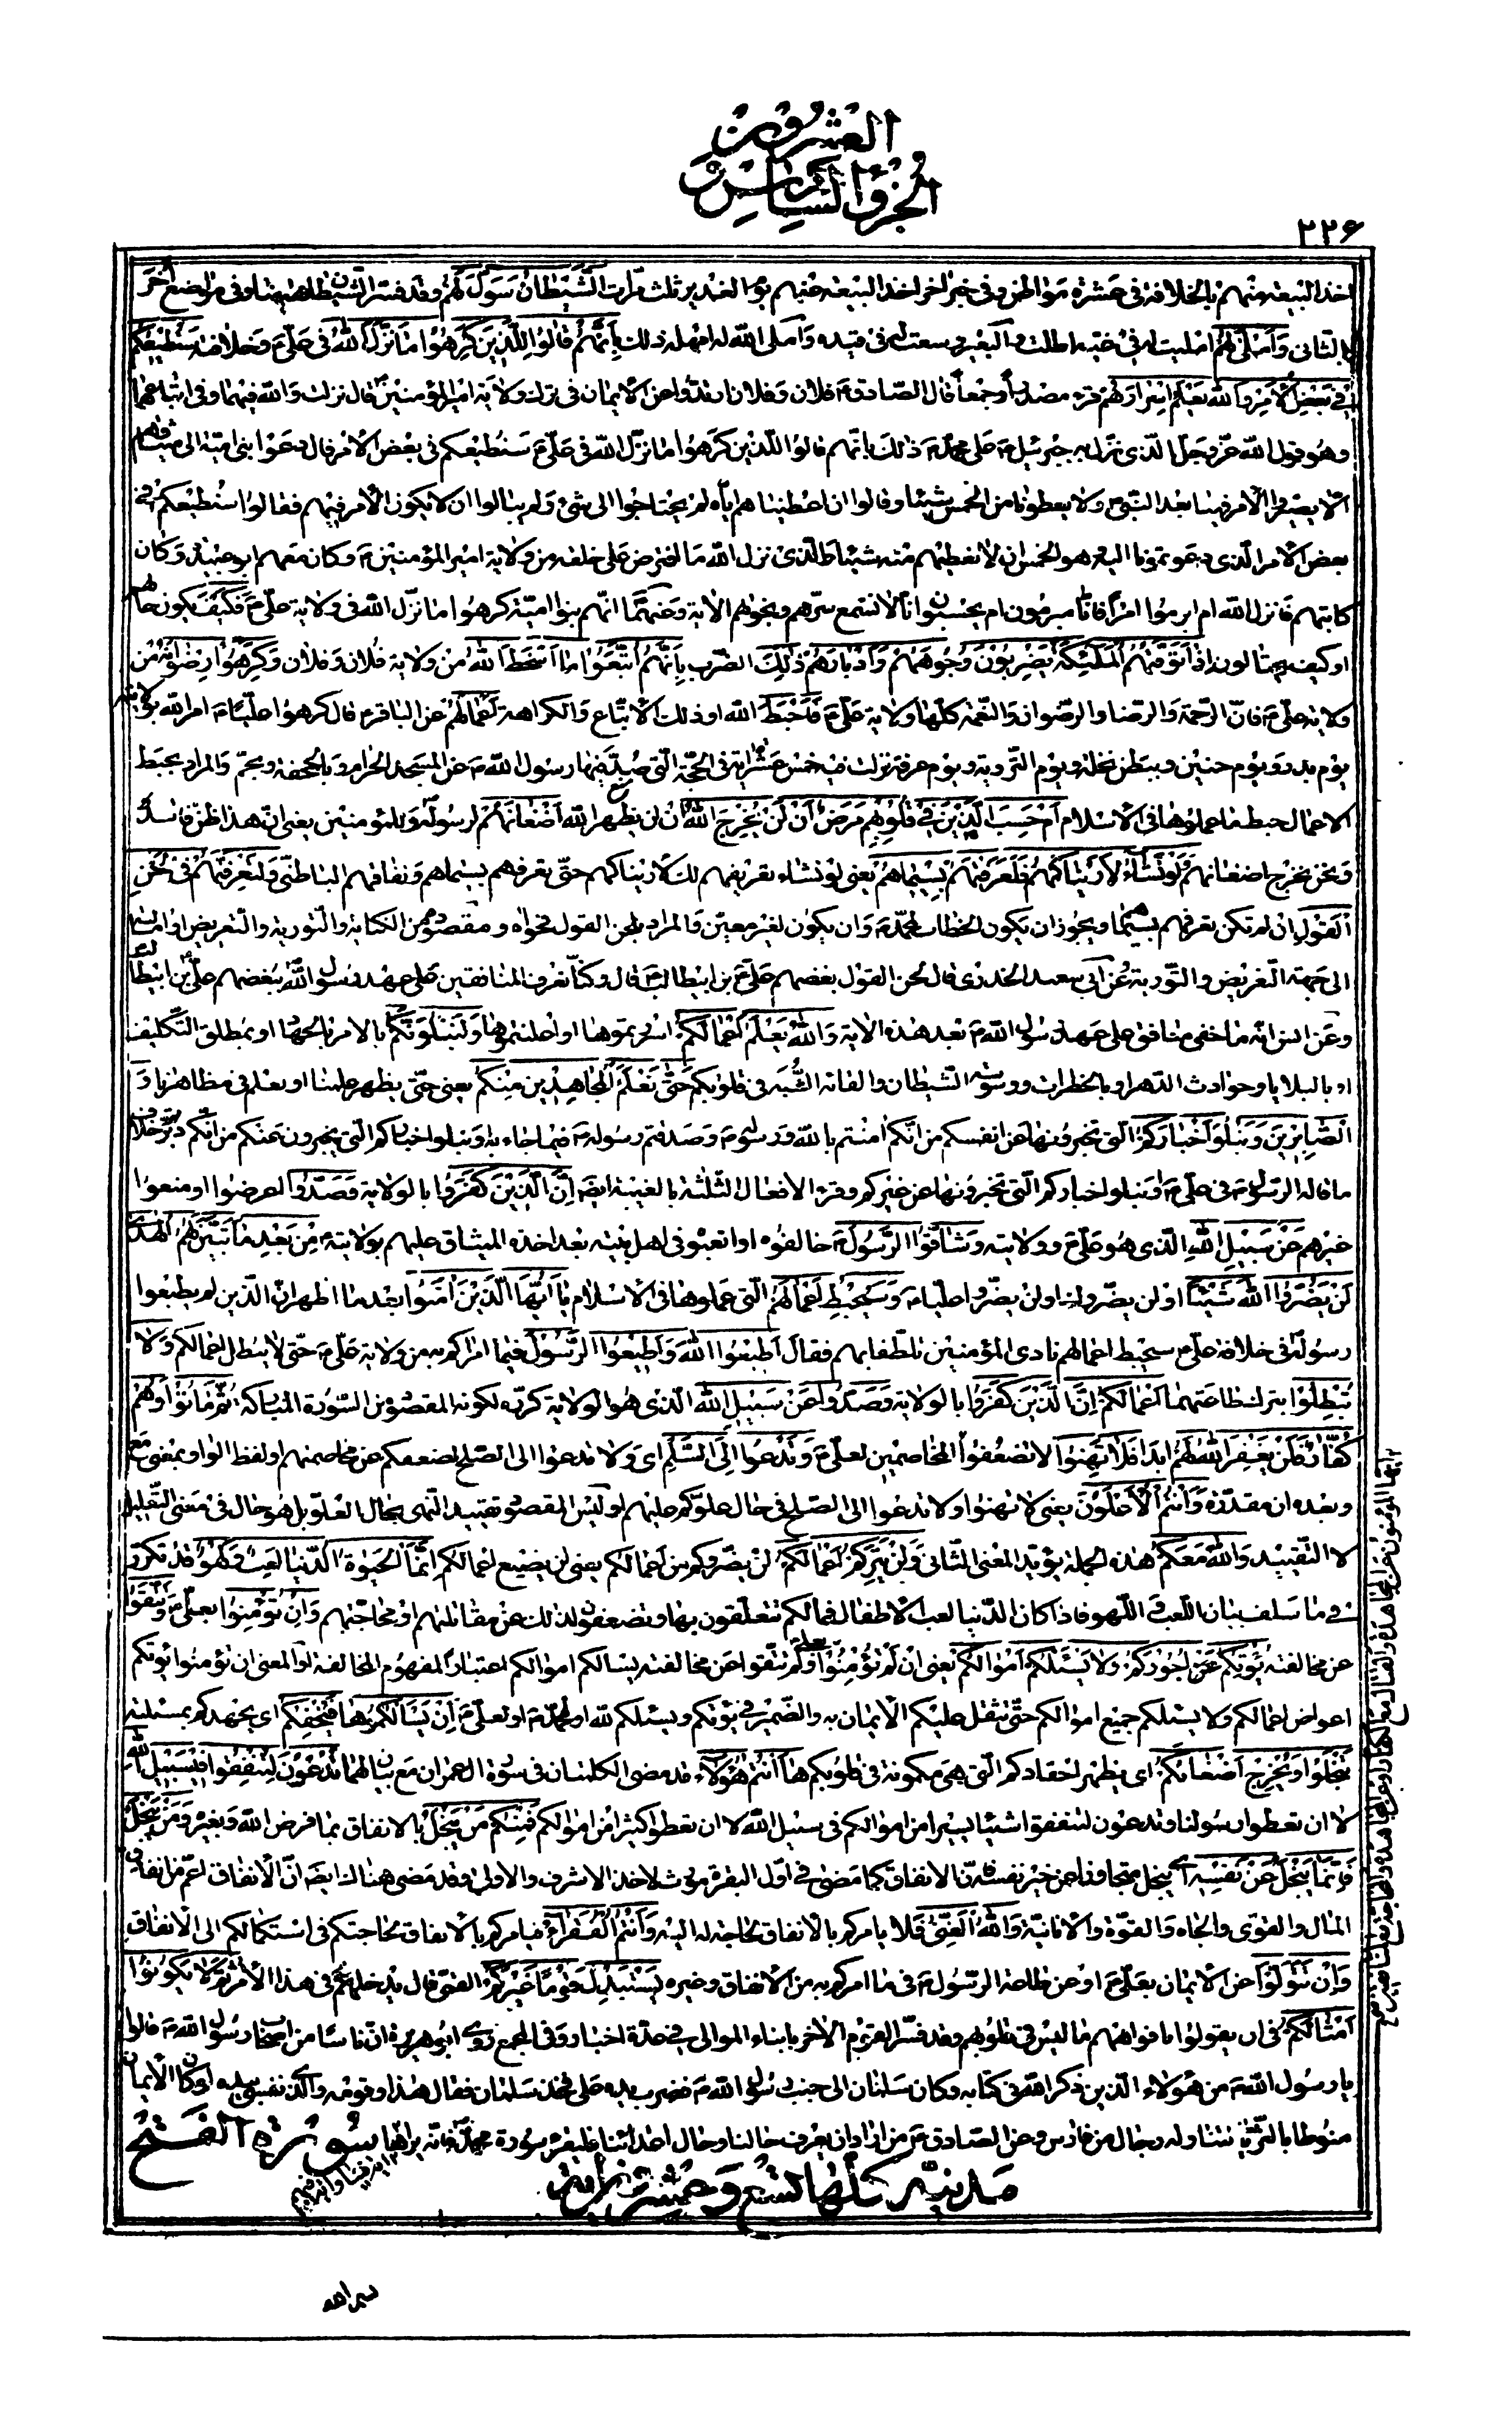 العشرون
الجزؤ السادس
۲۲۶
اخذ البيعة منهم بالخلافة فى عشرة مواطن وفى خبر اخر اخذ البيعة عنهم يوم الغدير ثلث مرات الشَّيْطَانُ سَوَّلَ لَهُمْ وقد فسّر الشيطان هيهنا وفى مواضع اخر
بالثانى وَاَمْلىٰ لَهُمْ امليت له فى غيّه اطلت والبعير وسعت له فى قيده واملى الله له امهله ذلِكَ بِاَنَّهُمْ قالُوا لِلَّذينَ كَرِهُوا ما نَزَّلَ اللهُ فى علىّ ع وخلافته سَنُطيعُكُمْ
فى بَعْضِ الْاَمْرِ وَاللهُ يَعْلَمُ اِسْرارَهُمْ قرئ مصدراً وجمعاً قال الصّادق ع فلان وفلان ارتدّوا عن الايمان فى ترك ولاية امير المؤمنين ع قال نزلت والله فيهما وفى اتباعهما
وهو قول الله عزّ وجلّ الّذى نزل به جبرئيل ع على محمّد ص ذلك بانّهم قالوا للّذين كرهوا ما نزّل الله فى علىّ ع سنطيعكم فى بعض الامر قال دعوا بنى اميّة الى ميثاقهم
الّا يصيروا الامر فينا بعد النّبىّ ص ولا يعطونا من الخمس شيئا وقالوا ان اعطيناهم ايّاه لم يحتاجوا الى شئ ولم يبالوا ان لا يكون الامر فيهم فقالوا سنطيعكم فى
بعض الامر الّذى دعوتمونا اليه وهو الخمس ان لا نعطيهم منه شيئا والّذى نزل الله ما افترض على خلقه من ولاية امير المؤمنين ع وكان معهم ابو عبيدة وكان
كاتبهم فانزل الله ام ابرموا امراً فانّا مبرمون ام يحسبون انّا لا نسمع سرّهم ونجواهم الاية وعنهما ع انّهم بنوا اميّة كرهوا ما نزّل الله فى ولاية علىّ ع فَكَيْفَ يكون حالهم
او كيف يحتالون اِذا تَوَفَّتْهُمُ الْمَلئِكَةُ يَضْرِبُونَ وُجُوهَهُمْ وَاَدْبارَهُمْ ذلِكَ الضّرب بِاَنَّهُمُ اتَّبَعُوا ما اَسْخَطَ اللهَ من ولاية فلان وفلان وَكَرِهُوا رِضْوانَهُ من
ولاية علىّ ع فانّ الرّحمة والرّضا والرّضوان والنّعمة كلّها ولاية علىّ ع فَاَحْبَطَ الله او ذلك الاتّباع والكراهة اَعْمالَهُمْ عن الباقر ع قال كرهوا عليّاً ع امر الله بولايته
يوم بدر ويوم حنين وببطن نخلة ويوم التّروية ويوم عرفة نزلت فيه خمس عشر اية فى الحجّة الّتى صدّ فيها رسول الله ص عن المسجد الحرام وبالجحفة وبخمّ والمراد بحبط
الاعمال حبط ما عملوها فى الاسلام اَمْ حَسِبَ الَّذينَ فى قُلُوبِهِمْ مَرَضٌ اَنْ لَنْ يُخْرِجَ اللهُ ان لن يظهر الله اَضْغانَهُمْ لرسوله وللمؤمنين يعنى انّ هذا ظنّ فاسد
ونحن نخرج اضغانهم وَلَوْ نَشاءُ لَاَرَيْناكَهُمْ فَلَعَرَفْتَهُمْ بِسيماهُمْ يعنى لو نشاء تعريفهم لك لاريناكهم حتّى تعرفهم بسيماهم ونفاقهم الباطنىّ وَلَتَعْرِفَنَّهُمْ فى لَحْنِ
الْقَوْلِ ان لم تكن تعرفهم بسيماهم ويجوز ان يكون الخطاب لمحمّد ص وان يكون لغير معيّن والمراد بلحن القول فحواه ومقصوده من الكناية والتّورية والتّعريض او امالته
الى جهة التّعريض والتّورية عن ابى سعيد الخدرى قال لحن القول بغضهم علىّ بن ابيطالب ع قال وكنّا نعرف المنافقين على عهد رسول الله ببغضهم علىّ بن ابيطالب ع
وعن انس انّه ما خفى منافق على عهد رسول الله ص بعد هذه الاية وَاللهُ يَعْلَمُ اَعْمالَكُمْ اسررتموها او اعلنتموها وَلَنَبْلُوَنَّكُمْ بالامر بالجهاد او بمطلق التّكليف
او بالبلايا وحوادث الدّهر او بالخطرات ووسوسة الشّيطان والقائه الشّبه فى قلوبكم حَتّى نَعْلَمَ الْمُجاهِدينَ مِنْكُمْ يعنى حتّى يظهر علمنا او نعلم فى مظاهرنا وَ
الصّابِرينَ وَنَبْلُوَ اَخْبارَكُمْ الّتى تخبرونها عن انفسكم من انّكم امنتم بالله ورسوله ص وصدّقتم رسوله ص فيما جاء به ونبلو اخباركم الّتى يخبرون عنكم من انّكم دبّرتم خلاف
ما قاله الرّسول ص فى علىّ ع او نبلو اخباركم الّتى تخبرونها عن غيركم وقرئ الافعال الثّلثة بالغيبة ايضا اِنَّ الَّذينَ كَفَرُوا بالولاية وَصَدُّوا اعرضوا او منعوا
غيرهم عَنْ سَبيلِ اللهِ الّذى هو علىّ ع وولايته وَشاقُّوا الرَّسُولَ خالفوه او اتعبوه فى اهل بيته بعد اخذه الميثاق عليهم بولايته مِنْ بَعْدِ ما تَبَيَّنَ لَهُمُ الْهُدى
لَنْ يَضُرُّوا اللهَ شَيْئاً او لن يضرّوا رسوله او لن يضرّوا عليّاً ع وَسَيُحْبِطُ اَعْمالَهُمْ الّتى عملوها فى الاسلام يا اَيُّهَا الَّذينَ امَنُوا بعد ما اظهر انّ الّذين لم يطيعوا
رسوله ص فى خلافة علىّ ع سيحبط اعمالهم نادى المؤمنين تلطّفا بهم فقال اَطيعُوا اللهَ وَاَطيعُوا الرَّسُولَ فيما امركم به من ولاية علىّ ع حتّى لا يبطل اعمالكم وَلا
تُبْطِلُوا بترك طاعتهما اَعْمالَكُمْ اِنَّ الَّذينَ كَفَرُوا بالولاية وَصَدُّوا عَنْ سَبيلِ اللهِ الّذى هو الولاية كرّره لكونه المقصود من السّورة المباركة ثُمَّ ماتُوا وَهُمْ
كُفّارٌ فَلَنْ يَغْفِرَ اللهُ لَهُمْ ابدا فَلا تَهِنُوا لا تضعفوا المخاصمين لعلىّ ع وَتَدْعُوا اِلَى السَّلْمِ اى ولا تدعوا الى الصّلح لضعفكم عن مخاصمتهم ولفظ الواو بمعنى مع
وبعده ان مقدّرة وَاَنْتُمُ الْاَعْلَوْنَ يعنى لا تهنوا ولا تدعوا الى الصّلح فى حال علوّكم عليهم او ليس المقصود تقييد النّهى بحال العلوّ بل هو حال فى معنى التّعليل
لا التّقييد وَاللهُ مَعَكُمْ هذه الجملة يؤيّد المعنى الثّانى وَلَنْ يَتِرَكُمْ اَعْمالَكُمْ لن يضرّوكم من اعمالكم يعنى لن يضيع اعمالكم اِنَّمَا الْحَيوةُ الدُّنْيا لَعِبٌ وَلَهْوٌ قد تكرّر
فى ما سلف بيان اللّعب واللّهو فاذا كان الدّنيا لعب الاطفال فما لكم تتعلّقون بها وتضعفون لذلك عن مقاتلتهم او محاجّتهم وَاِنْ تُؤْمِنُوا بعلىّ ع وَتَتَّقُوا
عن مخالفته يُؤْتِكُمْ اُجُورَكُمْ وَلا يَسْئَلْكُمْ اَمْوالَكُمْ يعنى ان لم تؤمنوا بعلىّ ع ولم تتّقوا عن مخالفته يسالكم اموالكم اعتباراً لمفهوم المخالفة او المعنى ان تؤمنوا يؤتكم
اعواض اعمالكم ولا يسئلكم جميع اموالكم حتّى يثقل عليكم الايمان به والضّمير فى يؤتكم ويسئلكم لله او لمحمّد ص او لعلىّ ع اِنْ يَسْاَلْكُمُوها فَيُحْفِكُمْ اى يجهدكم بمسئلته
تَبْخَلُوا وَيُخْرِجْ اَضْغانَكُمْ اى يظهر احقادكم الّتى هى مكمونة فى قلوبكم ها اَنْتُمْ هؤُلاءِ قد مضى الكلمتان فى سورة ال عمران مع بيان لهما تُدْعَوْنَ لِتُنْفِقُوا فى سَبيلِ اللهِ
لا ان تعطوا رسولنا وتدعون لتنفقوا شيئا يسيرا من اموالكم فى سبيل الله لا ان تعطوا كثيرا من اموالكم فَمِنْكُمْ مَنْ يَبْخَلُ بالانفاق بما فرض الله وبغيره وَمَنْ يَبْخَلْ
فَاِنَّما يَبْخَلُ عَنْ نَفْسِه اى يبخل متجاوزا عن خير نفسه فانّ الانفاق كما مضى فى اوّل البقرة مورث لاخذ الاشرف والاولى وقد مضى هنالك ايضا انّ الانفاق اعمّ من انفاق
المال والقوى والجاه والقوّة والانانيّة وَاللهُ الْغَنِىُّ فلا يامركم بالانفاق لحاجة له اليه وَاَنْتُمُ الْفُقَراءُ فيامركم بالانفاق لحاجتكم فى استكمالكم الى الانفاق
وَاِنْ تَتَوَلَّوْا عن الايمان بعلىّ ع او عن طاعة الرّسول ص فى ما امركم به من الانفاق وغيره يَسْتَبْدِلْ قَوْماً غَيْرَكُمْ القمّى قال يدخلهم فى هذا الامر ثُمَّ لا يَكُونُوا
اَمْثالَكُمْ فى ان يقولوا بافواههم ما ليس فى قلوبهم وقد فسّر القوم الاخر بابناء الموالى فى عدّة اخبار وفى المجمع روى ابو هريرة انّ ناسا من اصحاب رسول الله ص قالوا
يا رسول الله ص من هؤلاء الّذين ذكر الله فى كتابه وكان سلمان الى جنب رسول الله ص فضرب يده على فخذ سلمان فقال هذا وقومه والّذى نفسى بيده لو كان الايمان
منوطا بالثّريّا لتناوله رجال من فارس وعن الصّادق ع من اراد ان يعرف حالنا وحال اعدائنا فليقرء سورة محمّد ص فانّه يراها اية فينا واية فيهم سُورَةُ الْفَتْحِ
مدنيّة كلّها تسع وعشرون اية